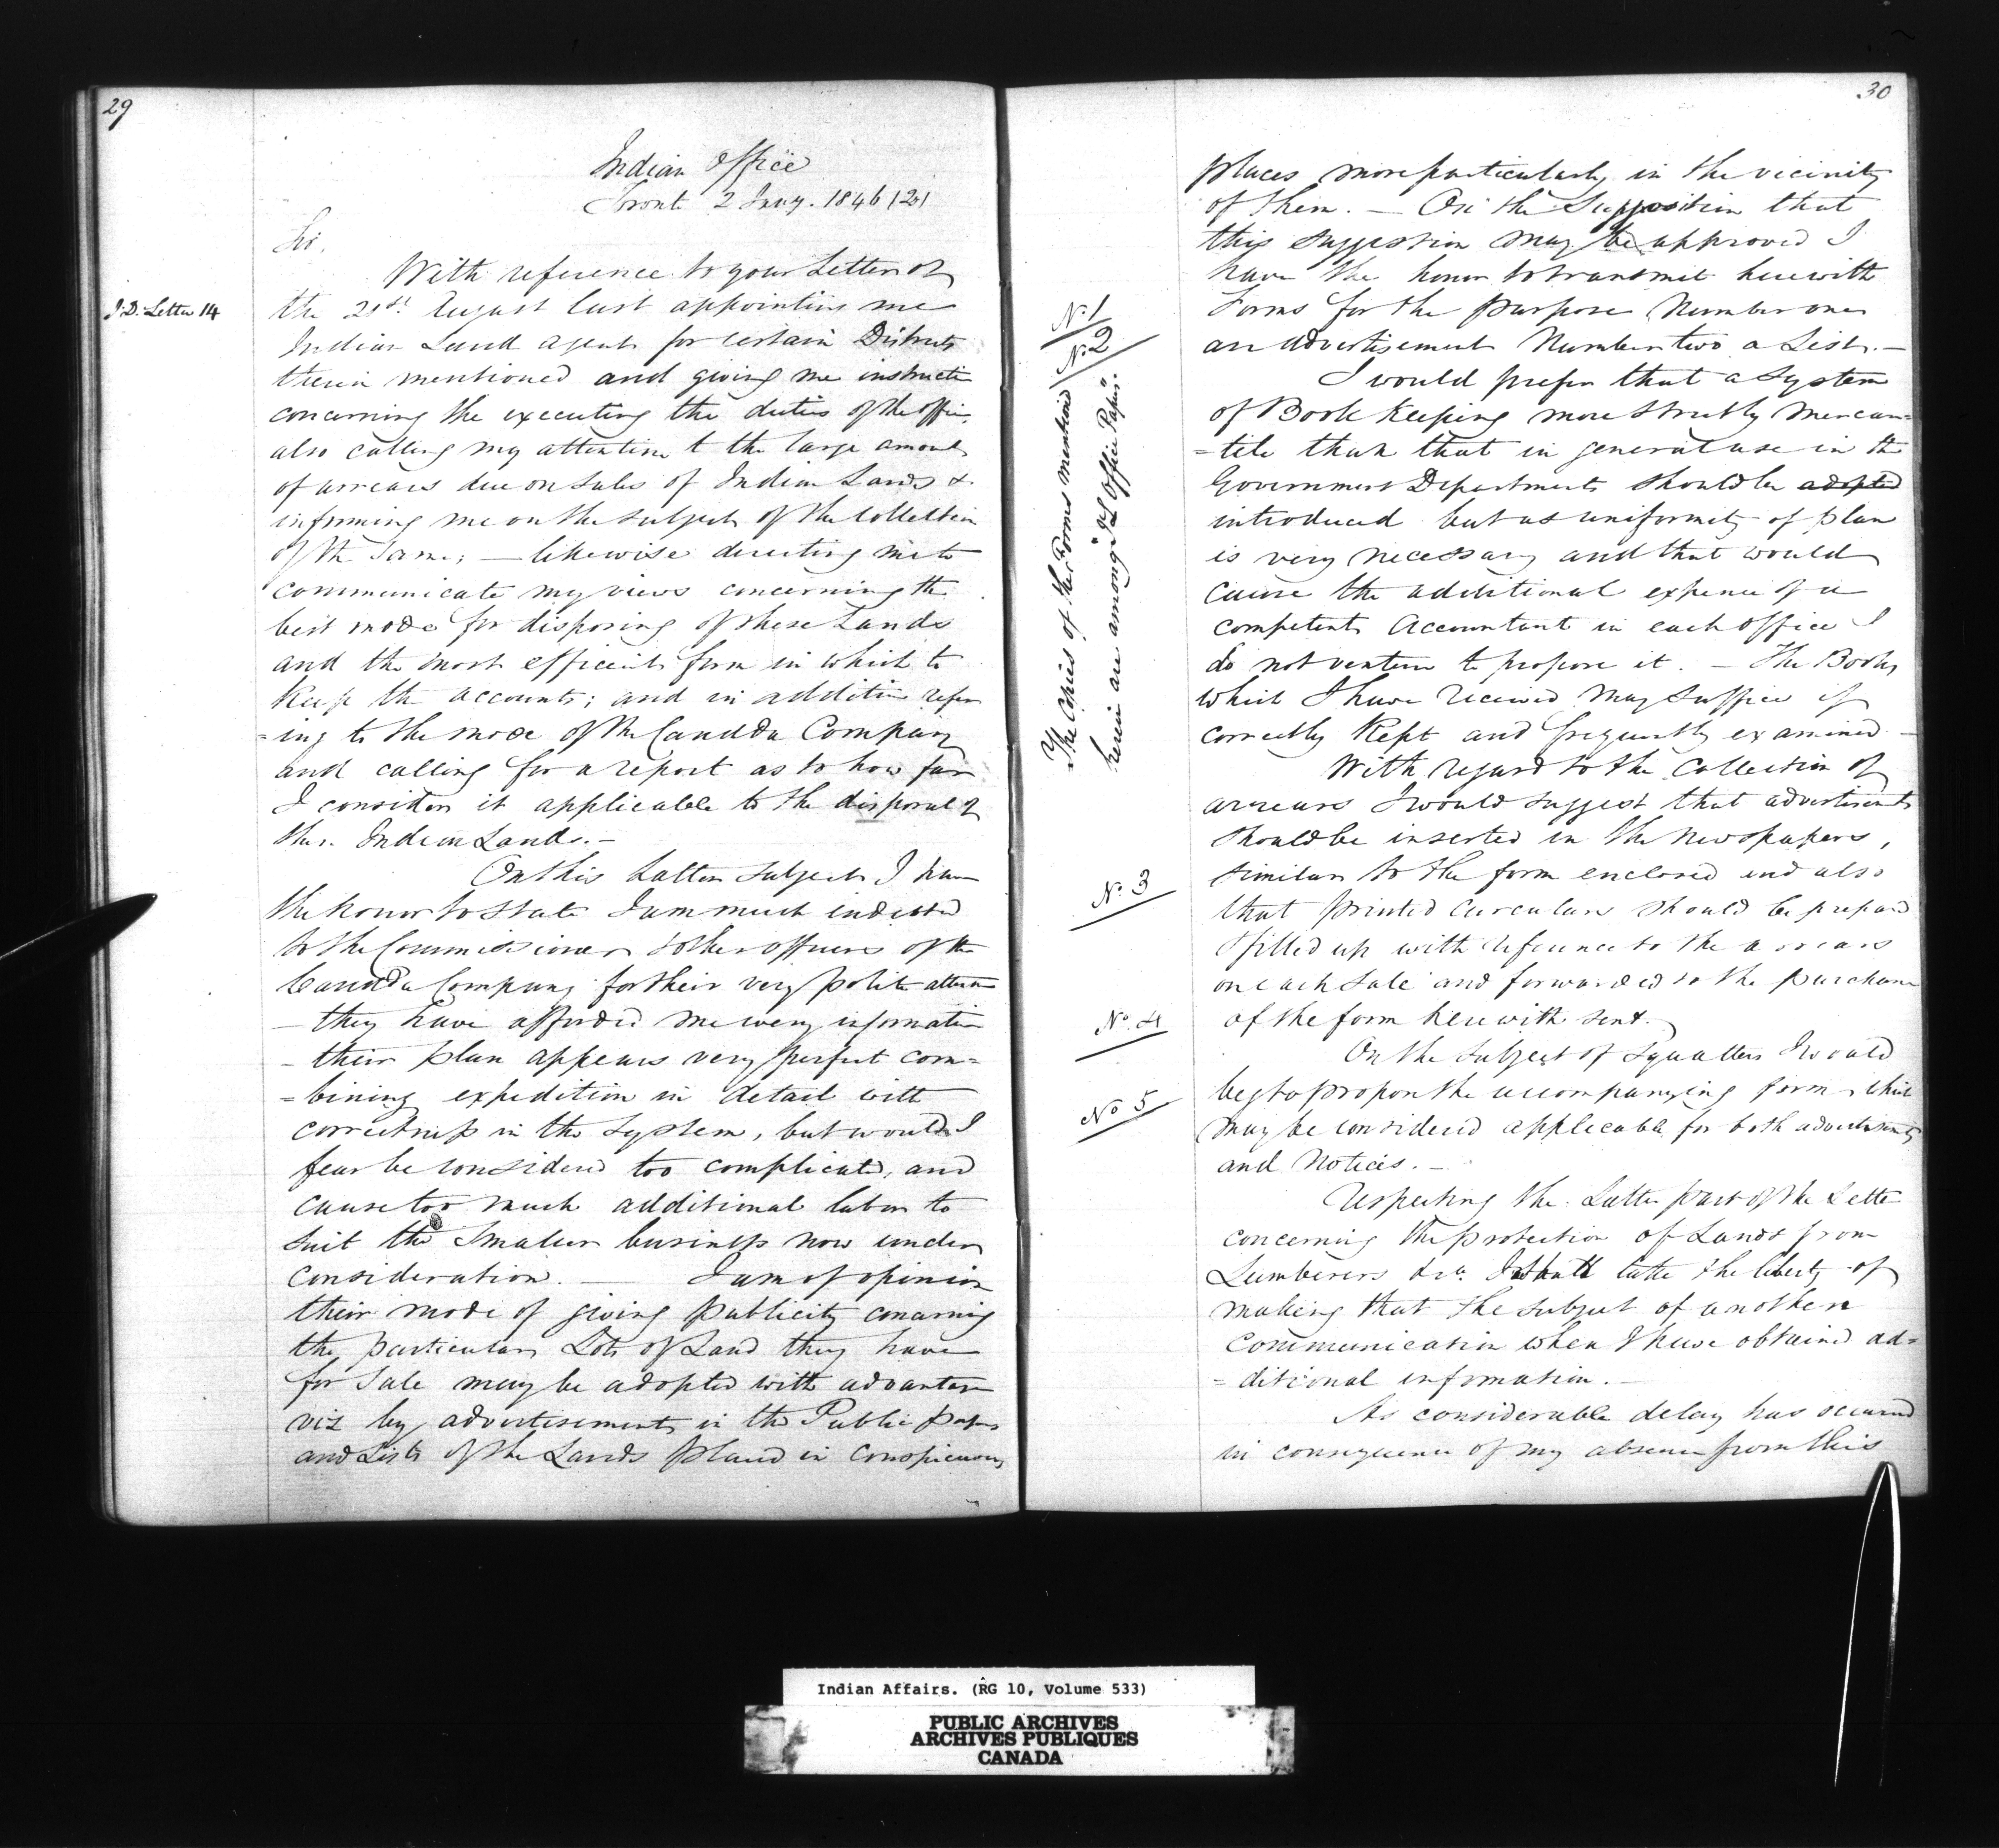 29
Indian Office
Toront 2 Jany. 1846 (20)
Sir,
With reference to your Letter of
J.D. Letter 14
the 21st August last appointing me
Indian Land agent for certain Districts
therein mentioned and giving me instructi
concerning the executing the duties of the office,
also calling my attention to the large amount
of arrears due on sales of Indian Lands &
informing me on the subject of the Collection
of the same; — likewise directing me to
communicate my views concerning the
best mode for disposing of these Lands
and the most efficient form in which to
Keep the accounts; and in addition refer
=ing to the mode of the Canada Company
and calling for a report as to how far
I consider it applicable to the disposal of
these Indian Lands. —
On this Latter subject I have
the honor to state I am much indebted
to the Commissioner & other officers of the
Canada Company for their very polite attention
— they have afforded me every information
— their plan appears very perfect com=
=bining expedition in detail with
correctness in the system, but would I
fear be considered too complicated, and
cause too much additional labor to
suit the smaller business now under
consideration. — I am of opinion
their mode of giving publicity concerning
the particular Lots of Land they have
for Sale may be adopted with advantage
viz by advertisements in the Public papers
and Lists of the Lands placed in Conspicuous
30
places more particularly in the vicinity
of them. — On the Supposition that
this suggestion may be approved I
have the honor to transmit herewith
Forms for the purpose Number one
N.1
an advertisement Number two a List. —
N.2
The Copies of the Forms mentioned
herein are among "I L Office Papers".
I would prefer that a system
of Book Keeping more strictly Mercan=
=tile than that in general use in the
Government Departments should be adopted
introduced but as uniformity of plan
is very necessary and that would
cause the additional expence of a
competent Accountant in each office I
do not venture to propose it. — The Books
which I have received may suffice if
correctly Kept and frequently examined —
With regard to the Collection of
arrears I would suggest that advertisements
should be inserted in the Newspapers,
similar to the form enclosed and also
N. 3
that printed circulars should be prepared
& filled up with reference to the arrears
on each Sale and forwarded to the purchaser
of the form herewith sent.
N. 4
On the subject of Squatters I would
beg to propose the accompanying form which
N.o 5
may be considered applicable for both advertisements
and Notices. —
Respecting the Latter part of the Letter
concerning the protection of Lands from
Lumberers &ca. I shall take the liberty of
making that the subject of another
communication when I have obtained ad=
=ditional information. —
As considerable delay has occurred
in consequence of my absence from this
Indian Affairs. (RG 10, Volume 533)
PUBLIC ARCHIVES
ARCHIVES PUBLIQUES
CANADA